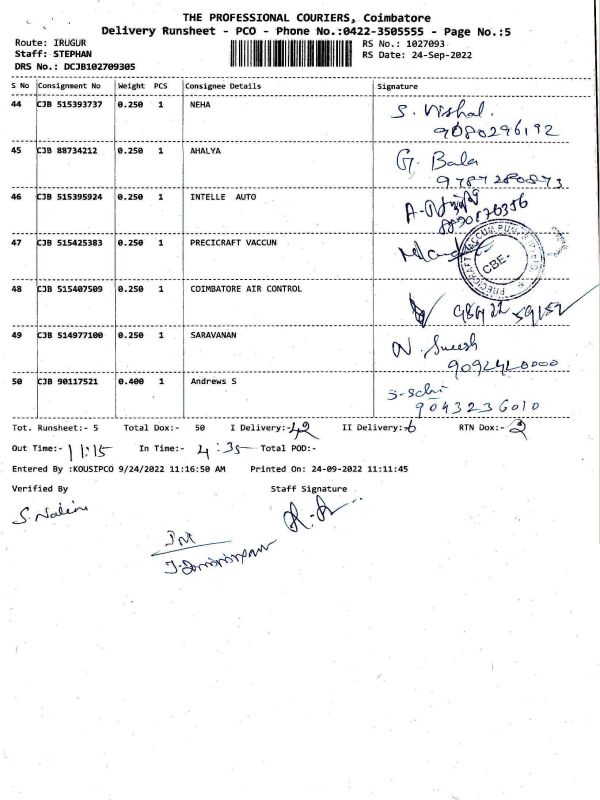 THE PROFESSIONAL COURIERS, Coimbatore
Delivery Runsheet - PCO - Phone No.:0422-3505555 - Page No.:5
Route: IRUGUR
Staff: STEPHAN
DRS No.: DCJB102709305
RS No.: 1027093
RS Date: 24-Sep-2022
S No Consignment No Weight PCS Consignee Details Signature
44 CJB 515393737 0.250 1 NEHA S. Vishal.
9080296192
45 CJB 88734212 0.250 1 AHALYA G. Bala
9787280873
46 CJB 515395924 0.250 1 INTELLE AUTO
47 CJB 515425383 0.250 1 PRECICRAFT VACCUN
CBE-
48 CJB 515407509 0.250 1 COIMBATORE AIR CONTROL
49 CJB 514977100 0.250 1 SARAVANAN N. Suresh
50 CJB 90117521 0.400 1 Andrews S
9043236010
Tot. Runsheet:- 5 Total Dox:- 50 I Delivery:-42 II Delivery:-6 RTN Dox:-2
Out Time:- 11:15 In Time:- 4:35 Total POD:-
Entered By :KOUSIPCO 9/24/2022 11:16:50 AM Printed On: 24-09-2022 11:11:45
Verified By Staff Signature
S. Nalini